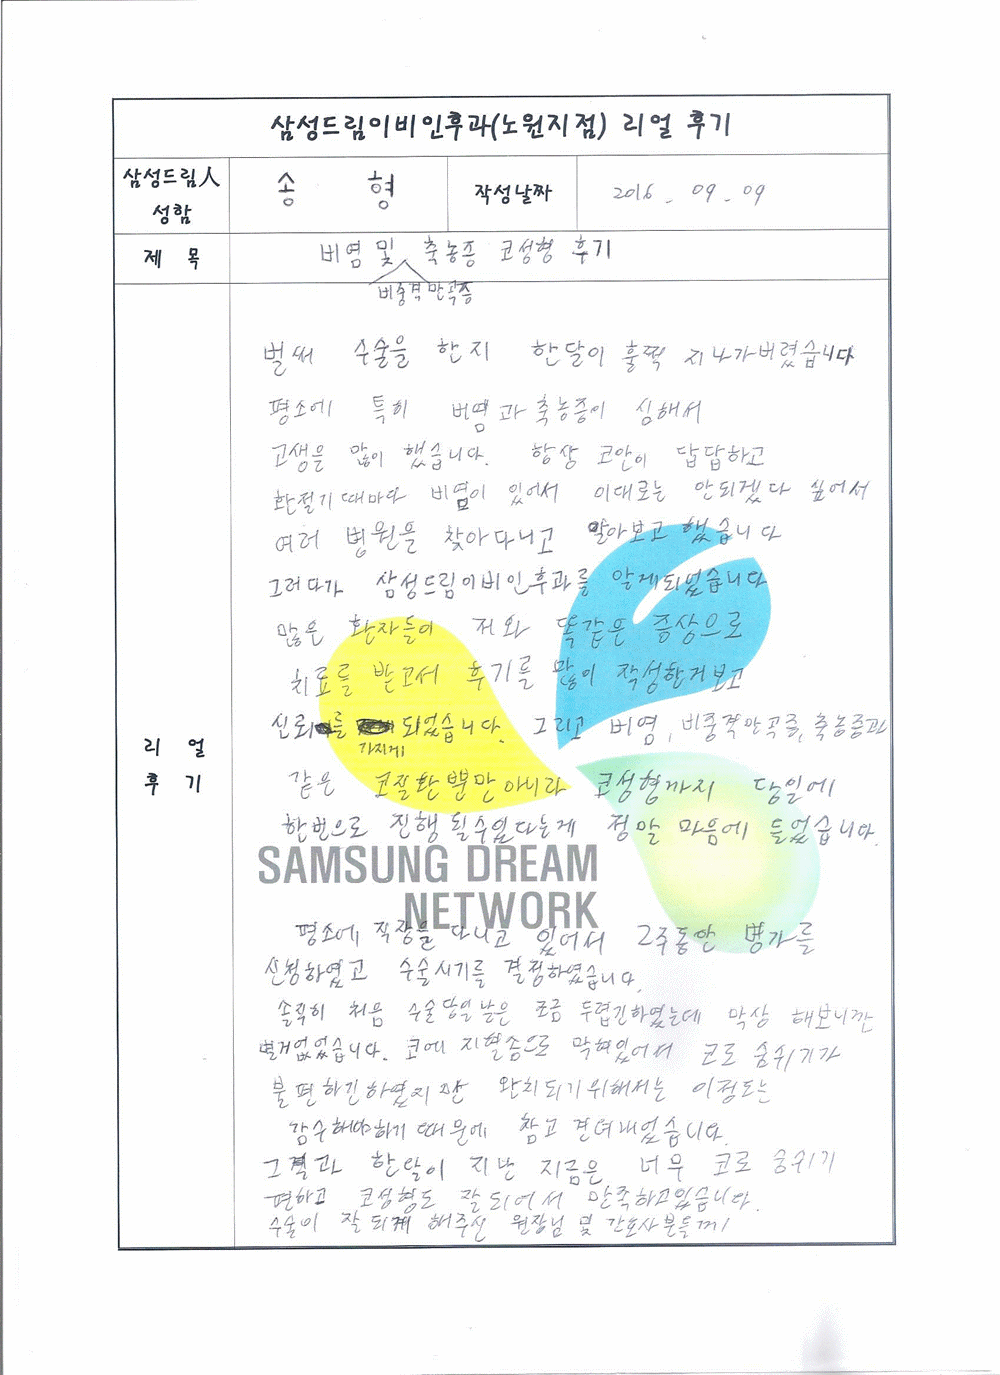 삼성드림이비인후과(노원지점) 리얼 후기
삼성드림人 성함
송 형
작성날짜
2016 - 09 - 09
제 목
비염 및 축농증 코성형 후기
비중격만곡증
리 얼 후 기
벌써 수술을 한지 한달이 훌쩍 지나가버렸습니다
평소에 특히 비염과 축농증이 심해서
고생을 많이 했습니다. 항상 코안이 답답하고
환절기때마다 비염이 있어서 이대로는 안되겠다 싶어서
여러 병원을 찾아다니고 알아보고 했습니다
그러다가 삼성드림이비인후과를 알게되었습니다
많은 환자들이 저와 똑같은 증상으로
치료를 받고서 후기를 많이 작성한거보고
신뢰를 가지게 되었습니다. 그리고 비염, 비중격만곡증, 축농증과
같은 코질환뿐만아니라 코성형까지 당일에
한번으로 진행될수있다는게 정말 마음에 들었습니다.
SAMSUNG DREAM
NETWORK
평소에 직장을 다니고 있어서 2주동안 병가를
신청하였고 수술시기를 결정하였습니다.
솔직히 처음 수술당일날은 조금 두렵긴하였는데 막상 해보니깐
별거없었습니다. 코에 지혈솜으로 막혀있어서 코로 숨쉬기가
불편하긴하였지만 완치되기위해서는 이정도는
감수해야하기 때문에 참고 견뎌내었습니다.
그결과 한달이 지난 지금은 너무 코로 숨쉬기
편하고 코성형도 잘되어서 만족하고있습니다.
수술이 잘되게 해주신 원장님 및 간호사분들께